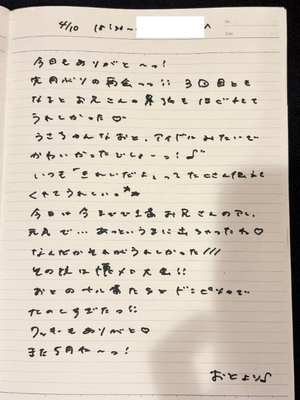 4/10 15:30~ へ
今日もありがと～っ!
先月ぶりの再会っっ!! 3回目とも
なるとお兄さんの緊張もほぐれてて
うれしかった♡
うさちゃんなおと、アイドルみたいで
かわいかったでしょーっ!♪
いつも「きれいだよ」ってたくさん伝え
くれてうれしいっ
今日は今までで1番お兄さんのアレ、
元気で…あっというまに出ちゃったね♡
なんだかそれがうれしかった///
その後は 大会!!
おとの たちと で
たのしすぎたっ!!
クッキーもありがと♡
また5月ね～っ!
おとより♪